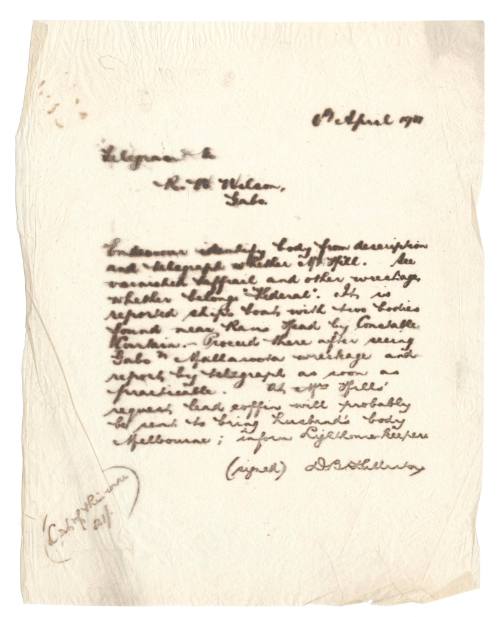 April 1901
Telegram to
R. W. Wilson,
Gabo.
Endeavour identify body from description
and telegraph whether Mr Hill. See
varnished taffrail and other wreckage
whether belongs "Federal". It is
reported ships boat with two bodies
found near Rame Head by Constable
Proceed there after seeing
Gabo & Mallacoota wreckage and
report by telegraph as soon as
practicable. At Mrs Hills'
request lead coffin will probably
be sent to bring husband's body
Melbourne; inform Lighthousekeepers
(signed)